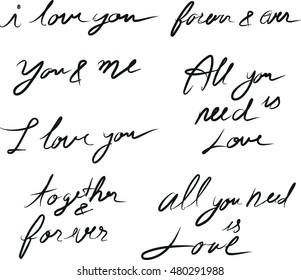 i love you
forever & ever
You & me
All you
need is
Love
I love you
together
&
forever
all you need
is
Love
shutterstock.com · 480291988